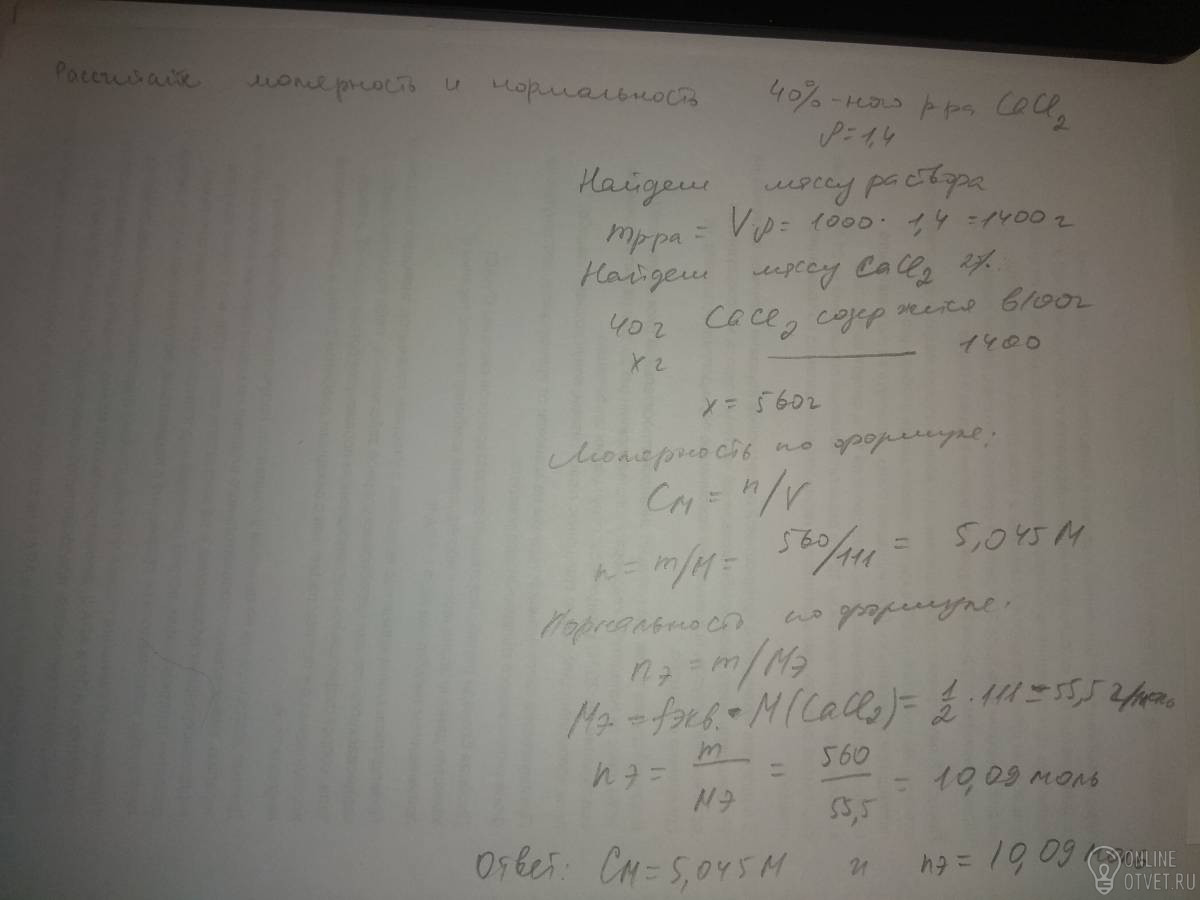 Рассчитайте молярность и нормальность 40%-ного р-ра CaCl2
ρ=1,4
Найдем массу раствора
mр-ра = V·ρ = 1000 · 1,4 = 1400 г
Найдем массу CaCl2
40 г CaCl2 содержится в 100г
x г ——— 1400
x = 560г
Молярность по формуле:
CM = n/V
n = m/M = 560/111 = 5,045 M
Нормальность по формуле.
nэ = m/Mэ
Mэ = fэкв. · M(CaCl2) = 1/2 · 111 = 55,5 г/моль
nэ = m/Mэ = 560/55,5 = 10,09 моль
Ответ: CM = 5,045 M и nэ = 10,09
ONLINE
OTVET.RU